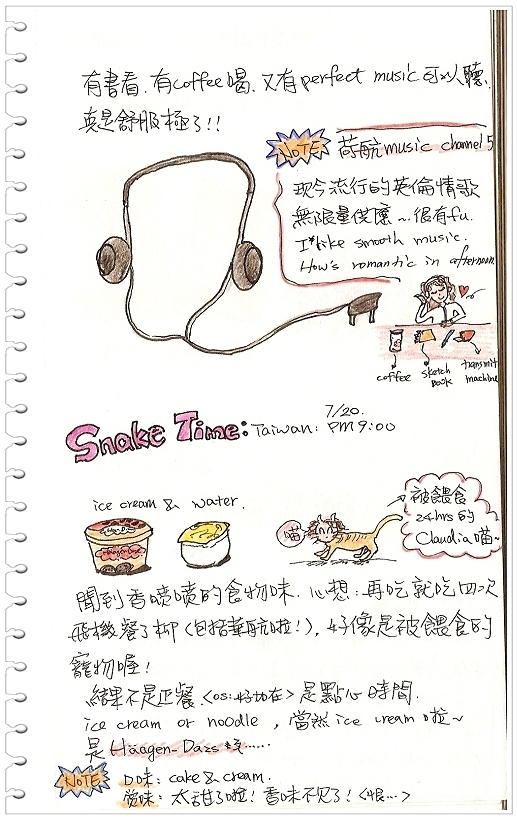 有書看、有coffee喝、又有perfect music可以聽、
真是舒服極了!!
NOTE 荷航music channel 5
現今流行的英倫情歌
無限量供應~很有fu.
I like smooth music.
How's romantic in afternoon
coffee
sketch book
transmit machine
Snake Time: Taiwan: 7/20. PM 9:00
ice cream & water.
喵
被餵食
24hrs的
Claudia喵~
聞到香噴噴的食物味、心想:再吃就吃四次
飛機餐了柳(包括華航啦!), 好像是被餵食的
寵物喔!
結果不是正餐<os:好加在>是點心時間.
ice cream or noodle , 當然ice cream啦~
是Häagen-Dazs
NOTE 口味: cake & cream.
賞味: 太甜了啦! 香味不見了!<恨...>